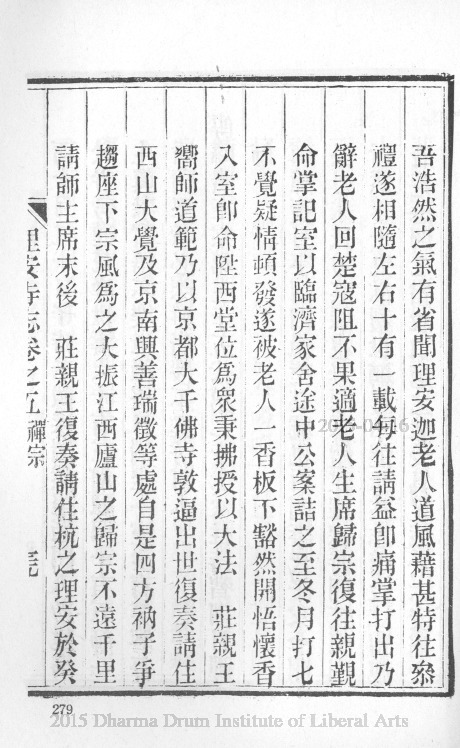 吾浩然之氣有省聞理安迦老人道風藉甚特往叅
禮遂相隨左右十有一載每往請益卽痛掌打出乃
辭老人回楚寇阻不果適老人主席歸宗復往親覲
命掌記室以臨濟家舍途中公案詰之至冬月打七
不覺疑情頓發遂被老人一香板下豁然開悟懷香
入室卽命陞西堂位爲衆秉拂授以大法　莊親王
嚮師道範乃以京都大千佛寺敦逼出世復奏請住
西山大覺及京南興善瑞徵等處自是四方衲子爭
趨座下宗風爲之大振江西廬山之歸宗不遠千里
請師主席末後　莊親王復奏請住杭之理安於癸
理安寺志卷之五 禪宗
279
2015 Dharma Drum Institute of Liberal Arts